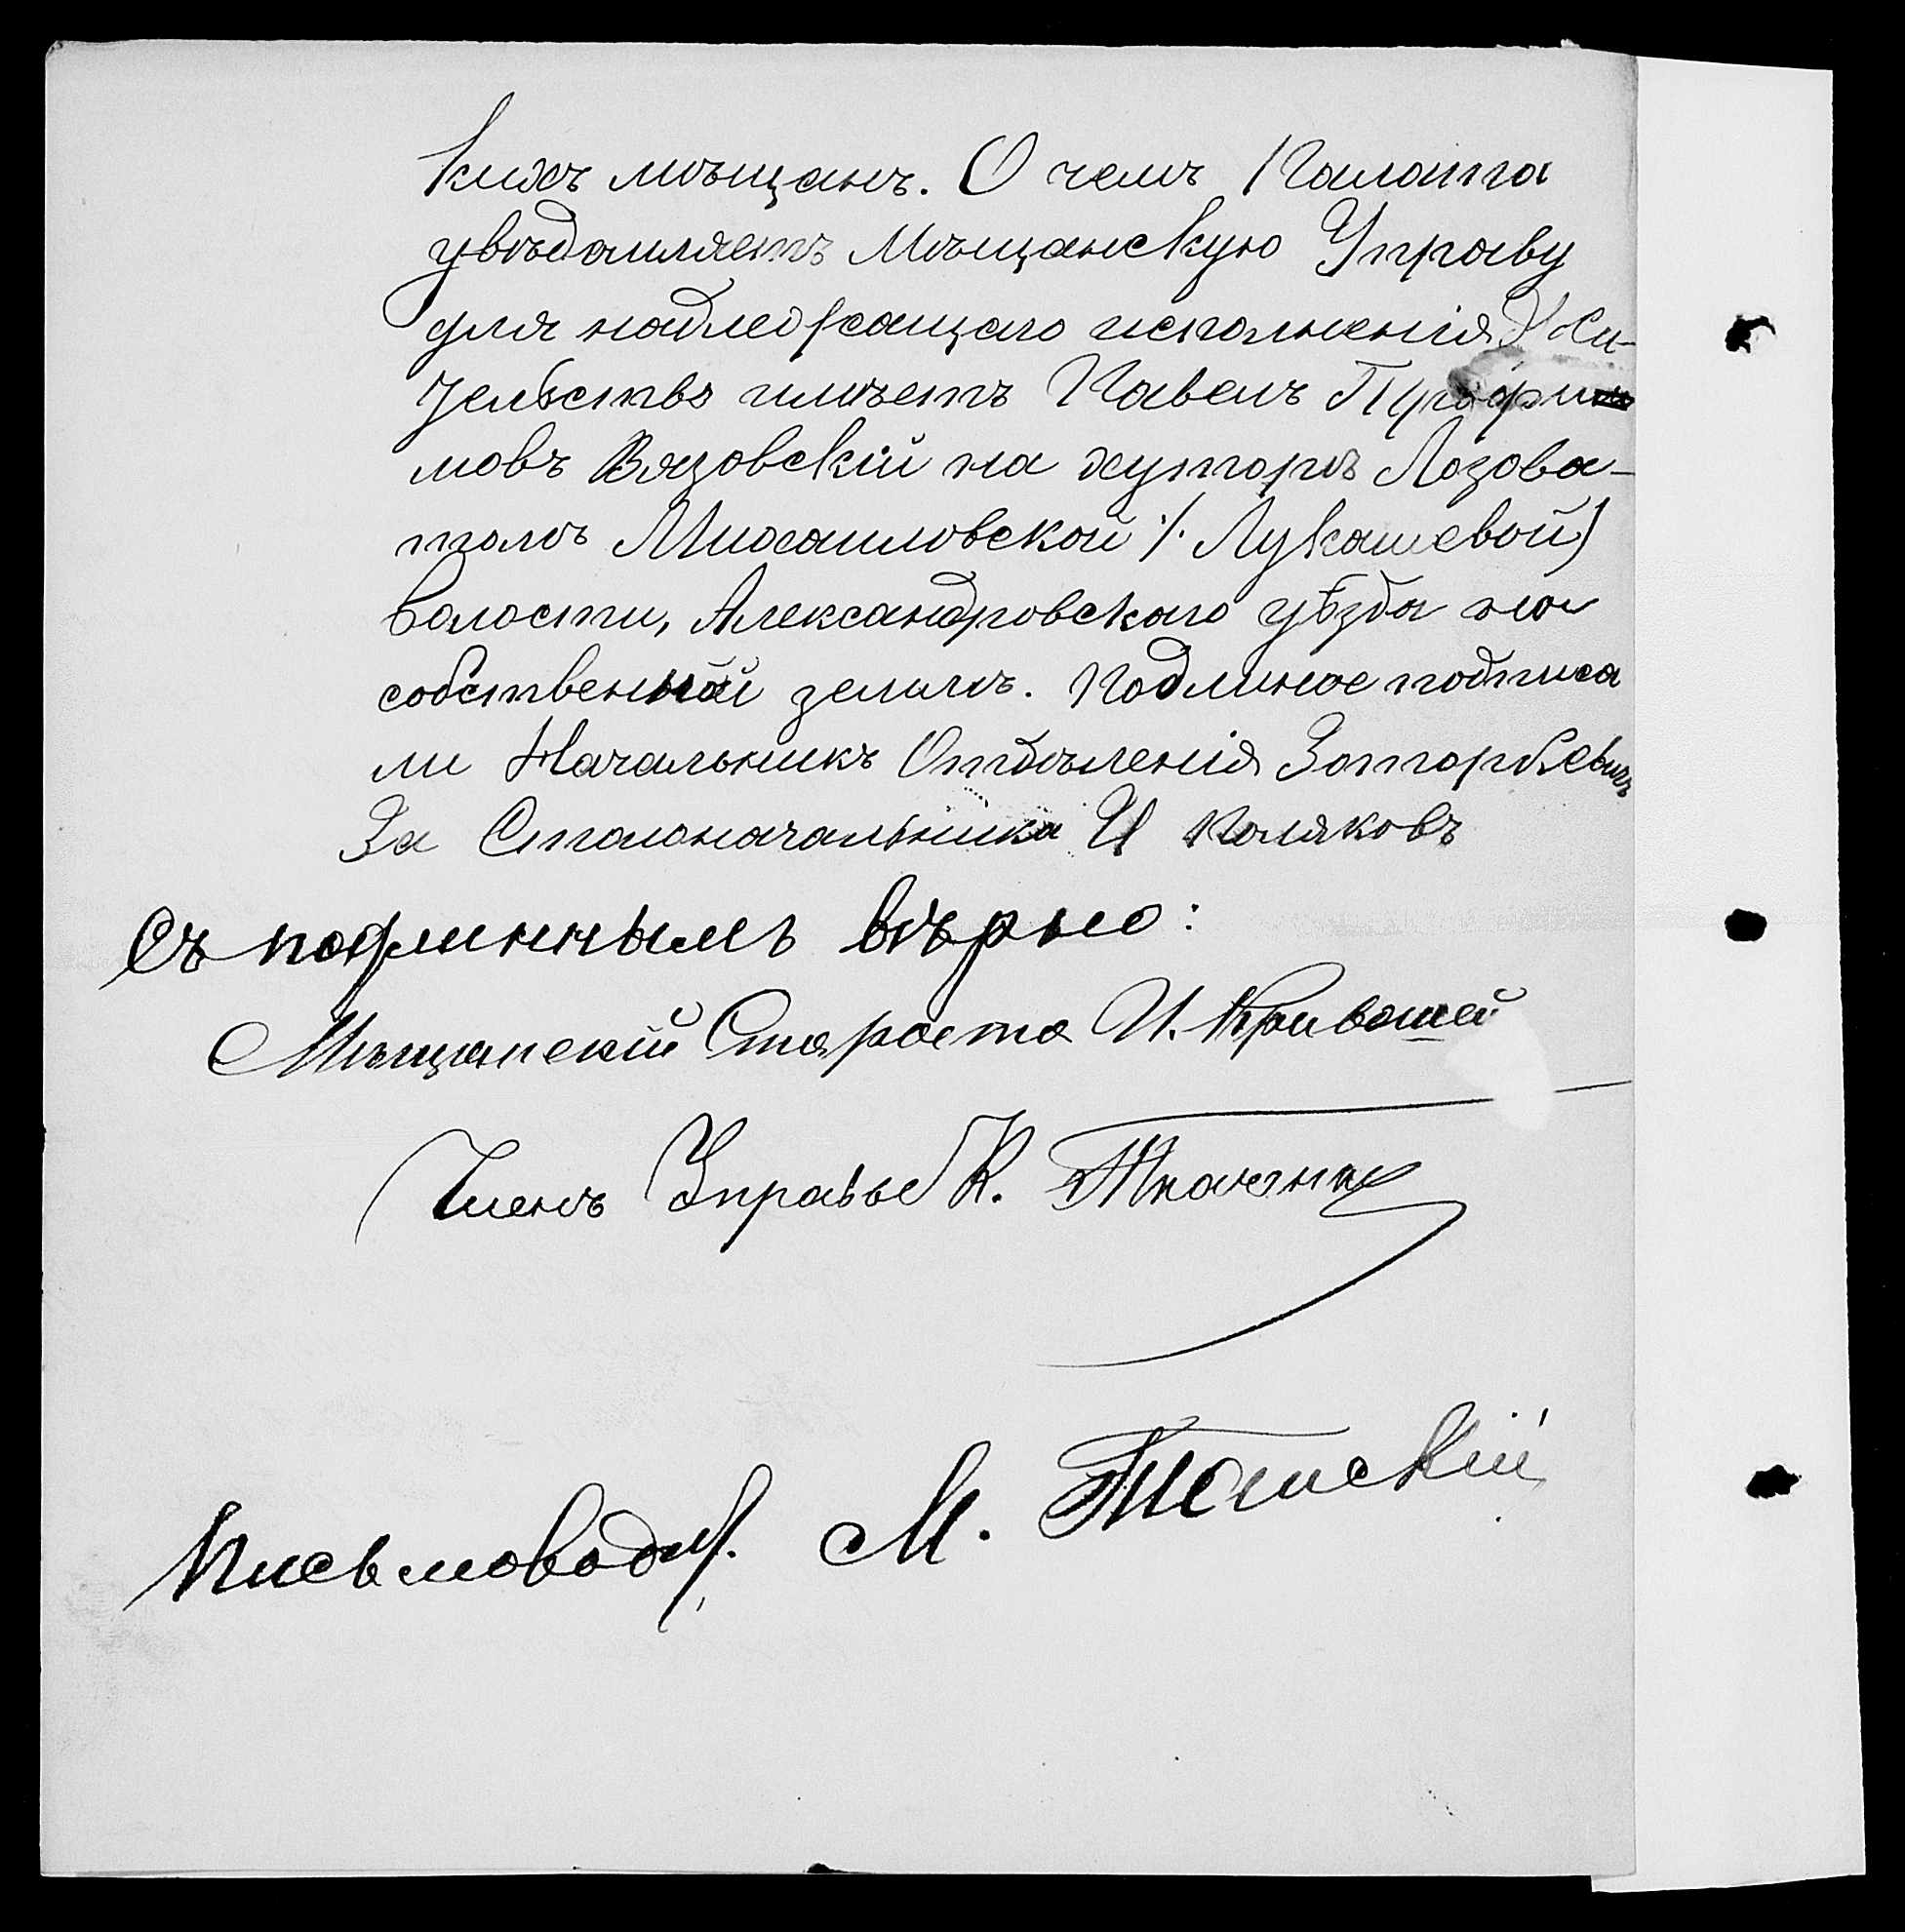 кихъ мѣщанъ. О чемъ Палата
увѣдомляетъ Мѣщанскую Управу
для надлежащаго исполненія Жи-
тельство имѣетъ Павелъ
мовъ Вязовскій на хуторѣ Лозова-
томъ Михайловской /. Лукашевой)
волости, Александровскаго уѣзда на
собственной землѣ. Подлиное подписа
ли Начальникъ Отдѣленія
За Столоначальника И Поляковъ
Съ подлиннымъ вѣрно:
Мѣщанскій Староста И. Кривошей
Членъ Управы К. Ткаченко
Письмоводит.  М.